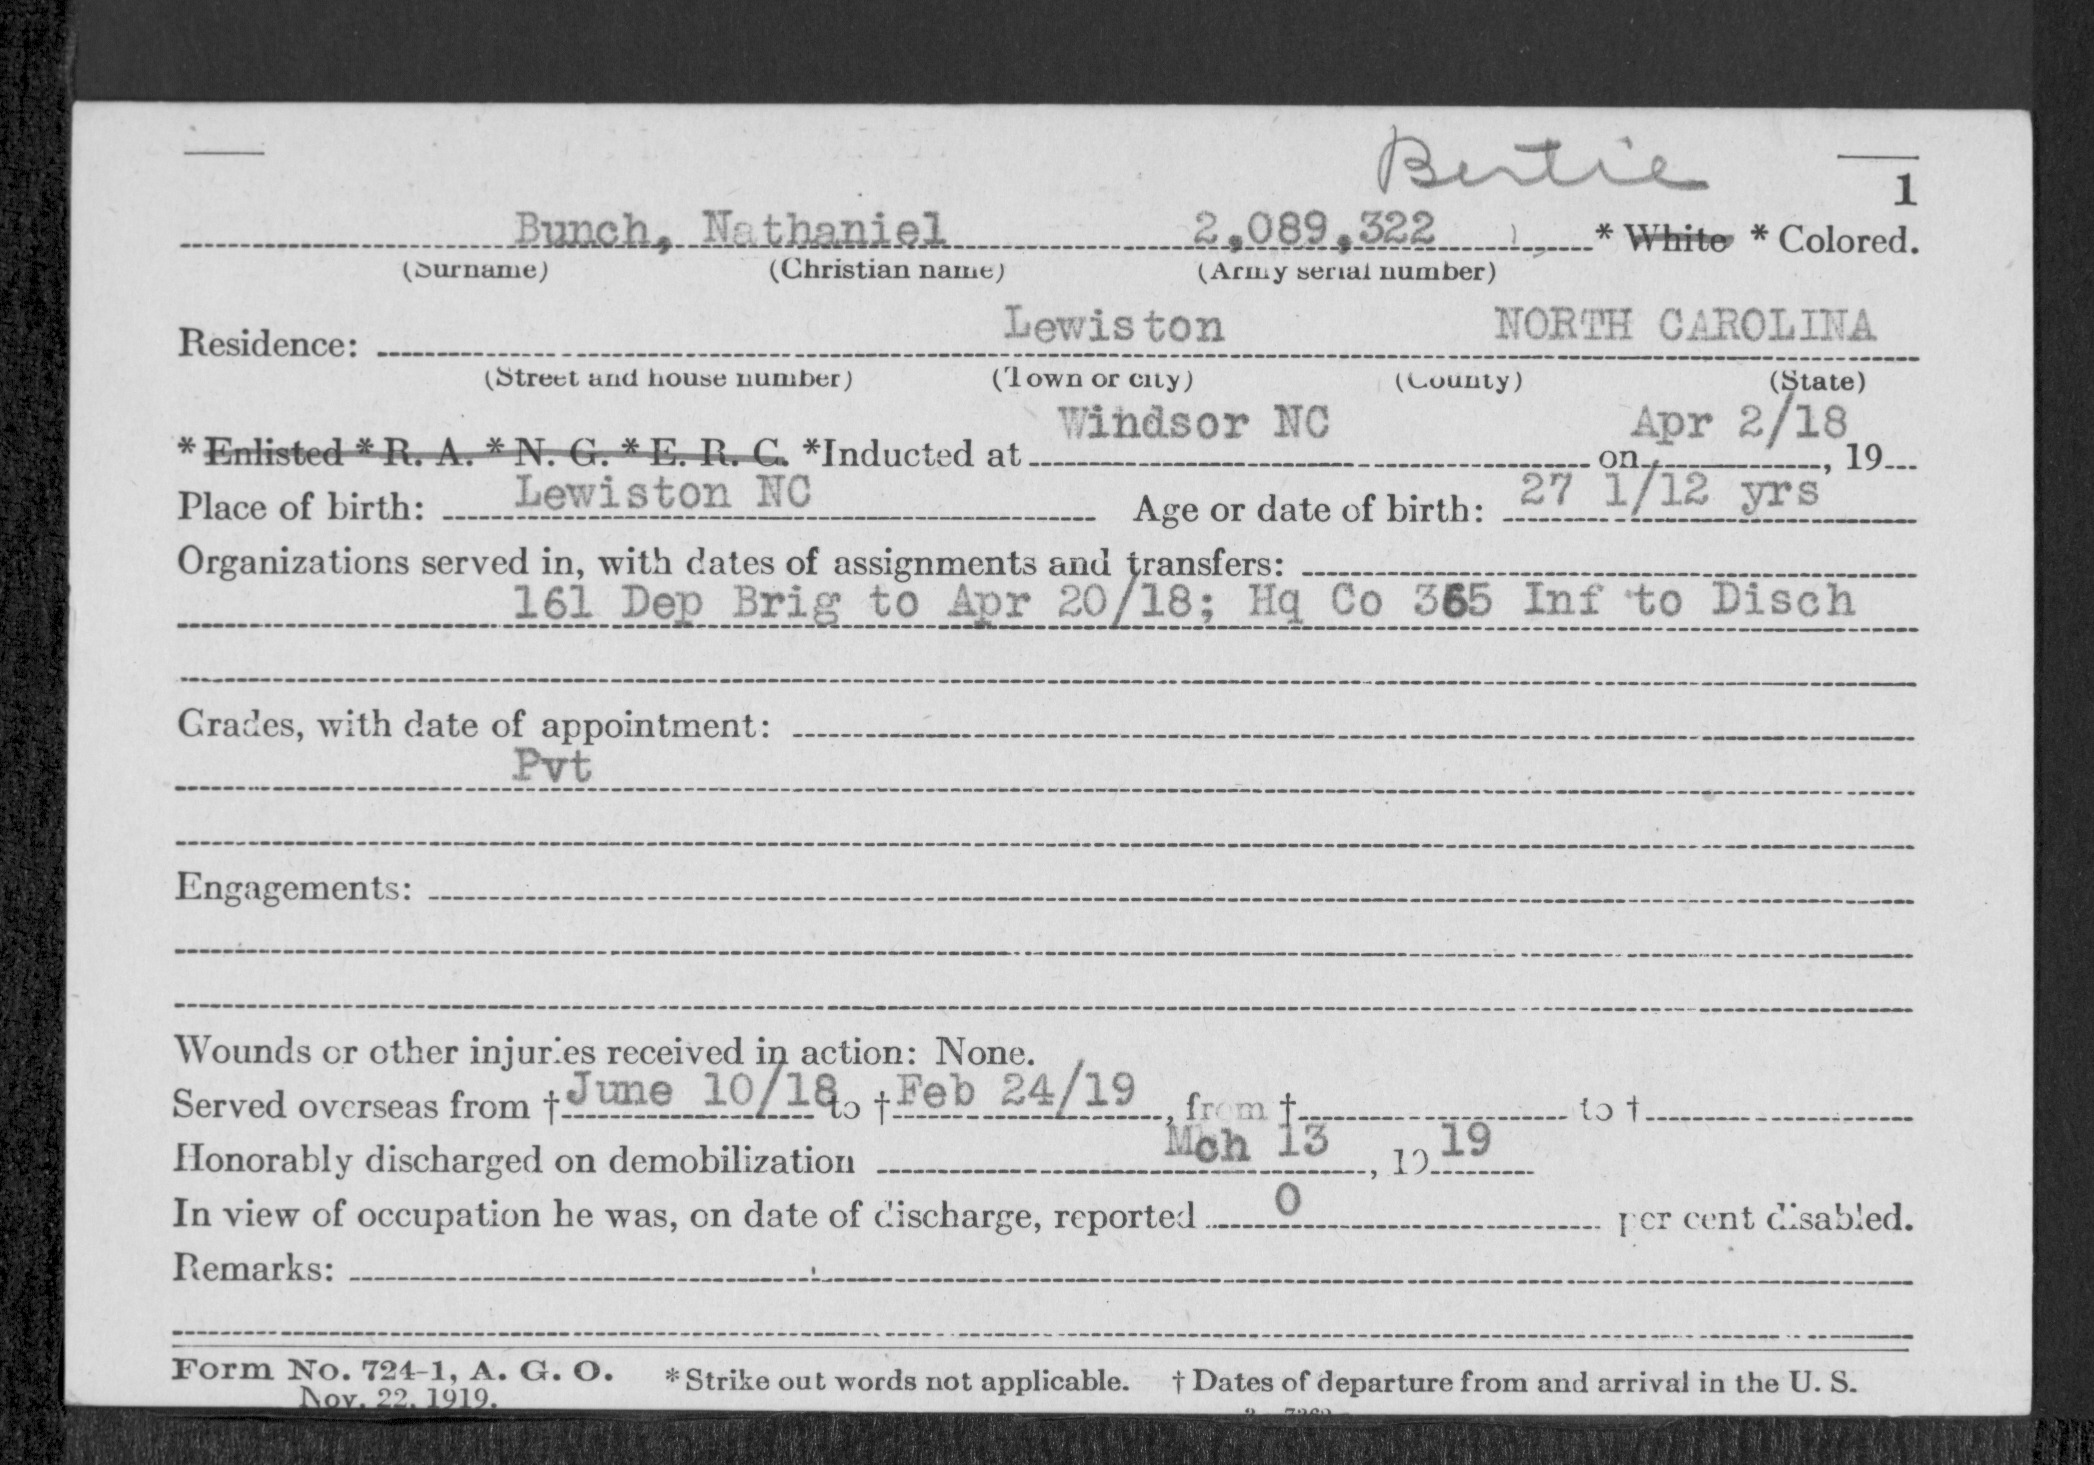 Bertie
1
Bunch, Nathaniel 2,089,322 * White * Colored.
(Surname) (Christian name) (Army serial number)
Residence: Lewiston NORTH CAROLINA
(Street and house number) (Town or city) (County) (State)
* Enlisted * R. A. * N. G. * E. R. C. *Inducted at Windsor NC on Apr 2/18, 19
Place of birth: Lewiston NC Age or date of birth: 27 1/12 yrs
Organizations served in, with dates of assignments and transfers:
161 Dep Brig to Apr 20/18; Hq Co 365 Inf to Disch
Grades, with date of appointment:
Pvt
Engagements:
Wounds or other injuries received in action: None.
Served overseas from † June 10/18 to † Feb 24/19, from † to †
Honorably discharged on demobilization Mch 13, 1919
In view of occupation he was, on date of discharge, reported 0 per cent disabled.
Remarks:
Form No. 724-1, A. G. O. * Strike out words not applicable. † Dates of departure from and arrival in the U. S.
Nov. 22, 1919.